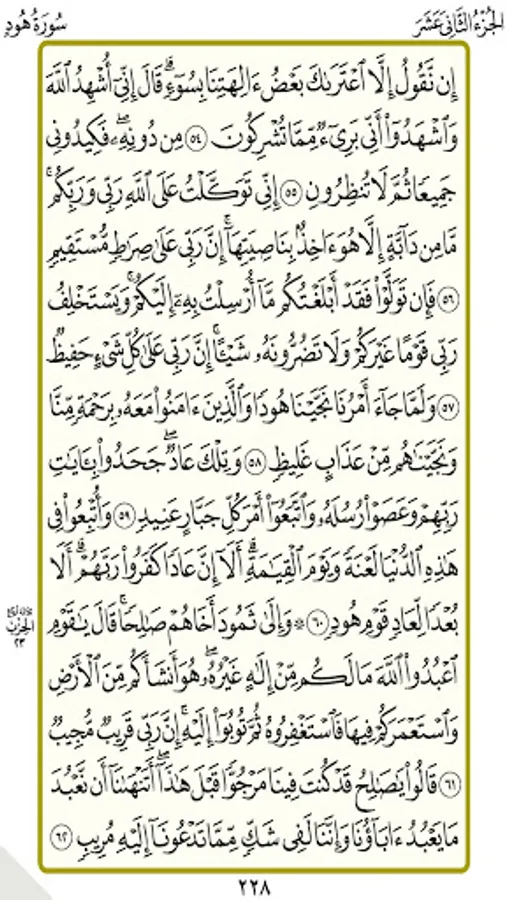 الجُزْءُ الثَّانِي عَشَرَ
سُورَةُ هُودٍ
إِن نَّقُولُ إِلَّا ٱعْتَرَىٰكَ بَعْضُ ءَالِهَتِنَا بِسُوٓءٍۗ قَالَ إِنِّيٓ أُشْهِدُ ٱللَّهَ
وَٱشْهَدُوٓا۟ أَنِّى بَرِىٓءٌ مِّمَّا تُشْرِكُونَ ٥٤ مِن دُونِهِۦۖ فَكِيدُونِى
جَمِيعًا ثُمَّ لَا تُنظِرُونِ ٥٥ إِنِّى تَوَكَّلْتُ عَلَى ٱللَّهِ رَبِّى وَرَبِّكُمۚ
مَّا مِن دَآبَّةٍ إِلَّا هُوَ ءَاخِذٌۢ بِنَاصِيَتِهَآۚ إِنَّ رَبِّى عَلَىٰ صِرَٰطٍ مُّسْتَقِيمٍ
٥٦ فَإِن تَوَلَّوْا۟ فَقَدْ أَبْلَغْتُكُم مَّآ أُرْسِلْتُ بِهِۦٓ إِلَيْكُمْۚ وَيَسْتَخْلِفُ
رَبِّى قَوْمًا غَيْرَكُمْ وَلَا تَضُرُّونَهُۥ شَيْـًٔاۚ إِنَّ رَبِّى عَلَىٰ كُلِّ شَىْءٍ حَفِيظٌ
٥٧ وَلَمَّا جَآءَ أَمْرُنَا نَجَّيْنَا هُودًا وَٱلَّذِينَ ءَامَنُوا۟ مَعَهُۥ بِرَحْمَةٍ مِّنَّا
وَنَجَّيْنَٰهُم مِّنْ عَذَابٍ غَلِيظٍ ٥٨ وَتِلْكَ عَادٌۖ جَحَدُوا۟ بِـَٔايَٰتِ
رَبِّهِمْ وَعَصَوْا۟ رُسُلَهُۥ وَٱتَّبَعُوٓا۟ أَمْرَ كُلِّ جَبَّارٍ عَنِيدٍ ٥٩ وَأُتْبِعُوا۟ فِى
هَٰذِهِ ٱلدُّنْيَا لَعْنَةً وَيَوْمَ ٱلْقِيَٰمَةِۗ أَلَآ إِنَّ عَادًا كَفَرُوا۟ رَبَّهُمْۗ أَلَا
بُعْدًا لِّعَادٍ قَوْمِ هُودٍ ٦٠ ۞ وَإِلَىٰ ثَمُودَ أَخَاهُمْ صَٰلِحًاۚ قَالَ يَٰقَوْمِ
ٱعْبُدُوا۟ ٱللَّهَ مَا لَكُم مِّنْ إِلَٰهٍ غَيْرُهُۥۖ هُوَ أَنشَأَكُم مِّنَ ٱلْأَرْضِ
وَٱسْتَعْمَرَكُمْ فِيهَا فَٱسْتَغْفِرُوهُ ثُمَّ تُوبُوٓا۟ إِلَيْهِۚ إِنَّ رَبِّى قَرِيبٌ مُّجِيبٌ
٦١ قَالُوا۟ يَٰصَٰلِحُ قَدْ كُنتَ فِينَا مَرْجُوًّا قَبْلَ هَٰذَآۖ أَتَنْهَىٰنَآ أَن نَّعْبُدَ
مَا يَعْبُدُ ءَابَآؤُنَا وَإِنَّنَا لَفِى شَكٍّ مِّمَّا تَدْعُونَآ إِلَيْهِ مُرِيبٍ ٦٢
الحِزْب
٢٣
٢٢٨